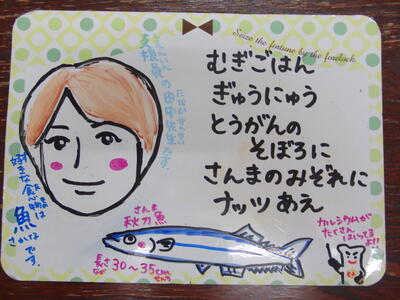 Seize the fortune by the forelock.
むぎごはん
ぎゅうにゅう
とうがんの
そぼろに
さんまのみぞれに
ナッツあえ
しえんいん
支援員の田中先生です。
たなかせんせい
好きな食べ物は
魚です。
さかな
さんま
秋刀魚
長さ30～35cm
なが
せんち
カルシウムが
たくさん
はいってる
よ!!